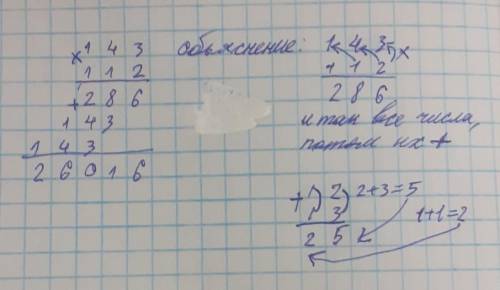 × 1 4 3
1 1 2
+ 2 8 6
1 4 3
1 4 3
2 6 0 1 6
объяснение:
1 4 3 ×
1 1 2
2 8 6
и так все числа,
потом их +
+ 1 2 2+3=5
1 3 1+1=2
2 5